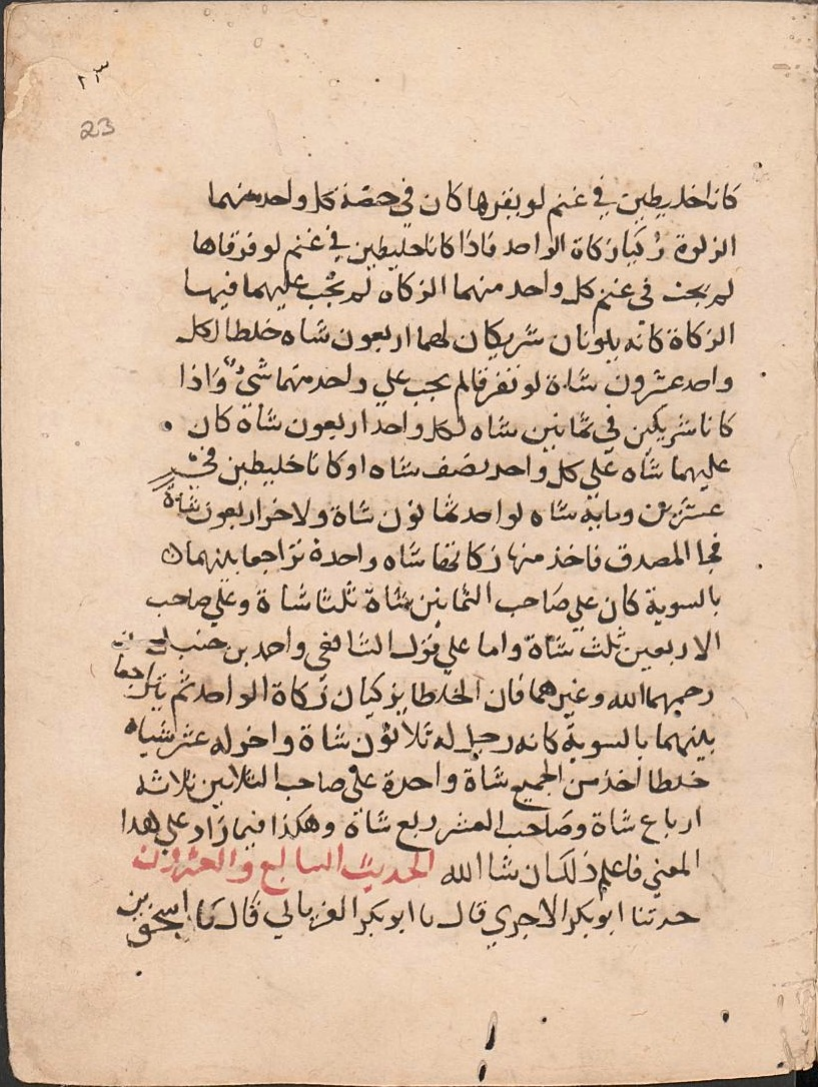 ٢٣
23
كانا خليطين في غنم لو بفرها كان في حصة كل واحد منهما
الزكوة زكيا زكاة الواحد فاذا كانا خليطين في غنم لو فرقاها
لم يجب في غنم كل واحد منهما الزكاه لم يجب عليهما فيها
الزكاة كانه يكونان شريكان لهما اربعون شاه خلطا لكل
واحد عشرون شاة لو تفرقا لم يجب علي واحد منهما شئ واذا
كانا شريكين في ثمانين شاه لكل واحد اربعون شاة كان
عليهما شاه علي كل واحد نصف شاه او كانا خليطين في
عشرين ومايه شاه لواحد ثمانون شاة ولاخر اربعون شاة
فجا المصدق فاخذ منها زكاتها شاه واحدة تراجعا بينهما
بالسوية كان علي صاحب الثمانين شاة ثلثا شاة وعلي صاحب
الاربعين ثلث شاة واما علي قول الشافعي واحمد بن حنبل
رحمهما الله وغيرهما فان الخلطا يزكيان زكاة الواحد ثم يتراجعا
بينهما بالسوية كانه رجل له ثلاثون شاة واخر له عشر شياه
خلطا اخذ من الجميع شاة واحدة علي صاحب الثلاثين ثلاثه
ارباع شاة وصاحب العشر ربع شاة وهكذا فيما زاد علي هذا
المعني فاعلم ذلك ان شا الله الحديث السابع والعشرون
حدثنا ابو بكر الاجري قال نا ابو بكر الفريابي قال نا اسحق بن